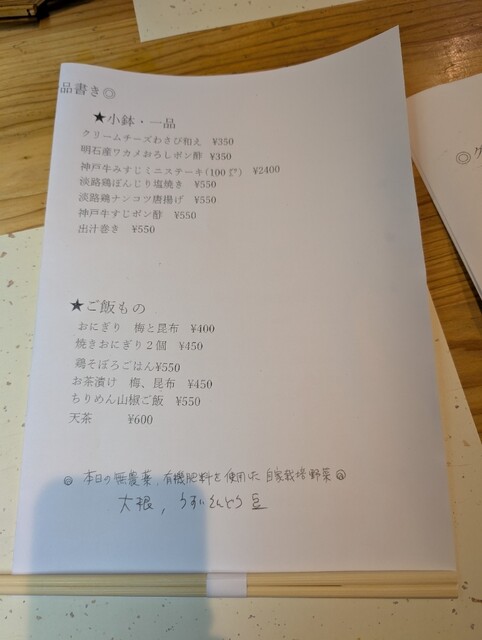 品書き◎
★小鉢・一品
クリームチーズわさび和え ¥350
明石産ワカメおろしポン酢 ¥350
神戸牛みすじミニステーキ(100㌘) ¥2400
淡路鶏ぼんじり塩焼き ¥550
淡路鶏ナンコツ唐揚げ ¥550
神戸牛すじポン酢 ¥550
出汁巻き ¥550
★ご飯もの
おにぎり 梅と昆布 ¥400
焼きおにぎり2個 ¥450
鶏そぼろごはん¥550
お茶漬け 梅、昆布 ¥450
ちりめん山椒ご飯 ¥550
天茶 ¥600
◎ 本日の無農薬、有機肥料を使用した自家栽培野菜◎
大根, うすいえんどう豆